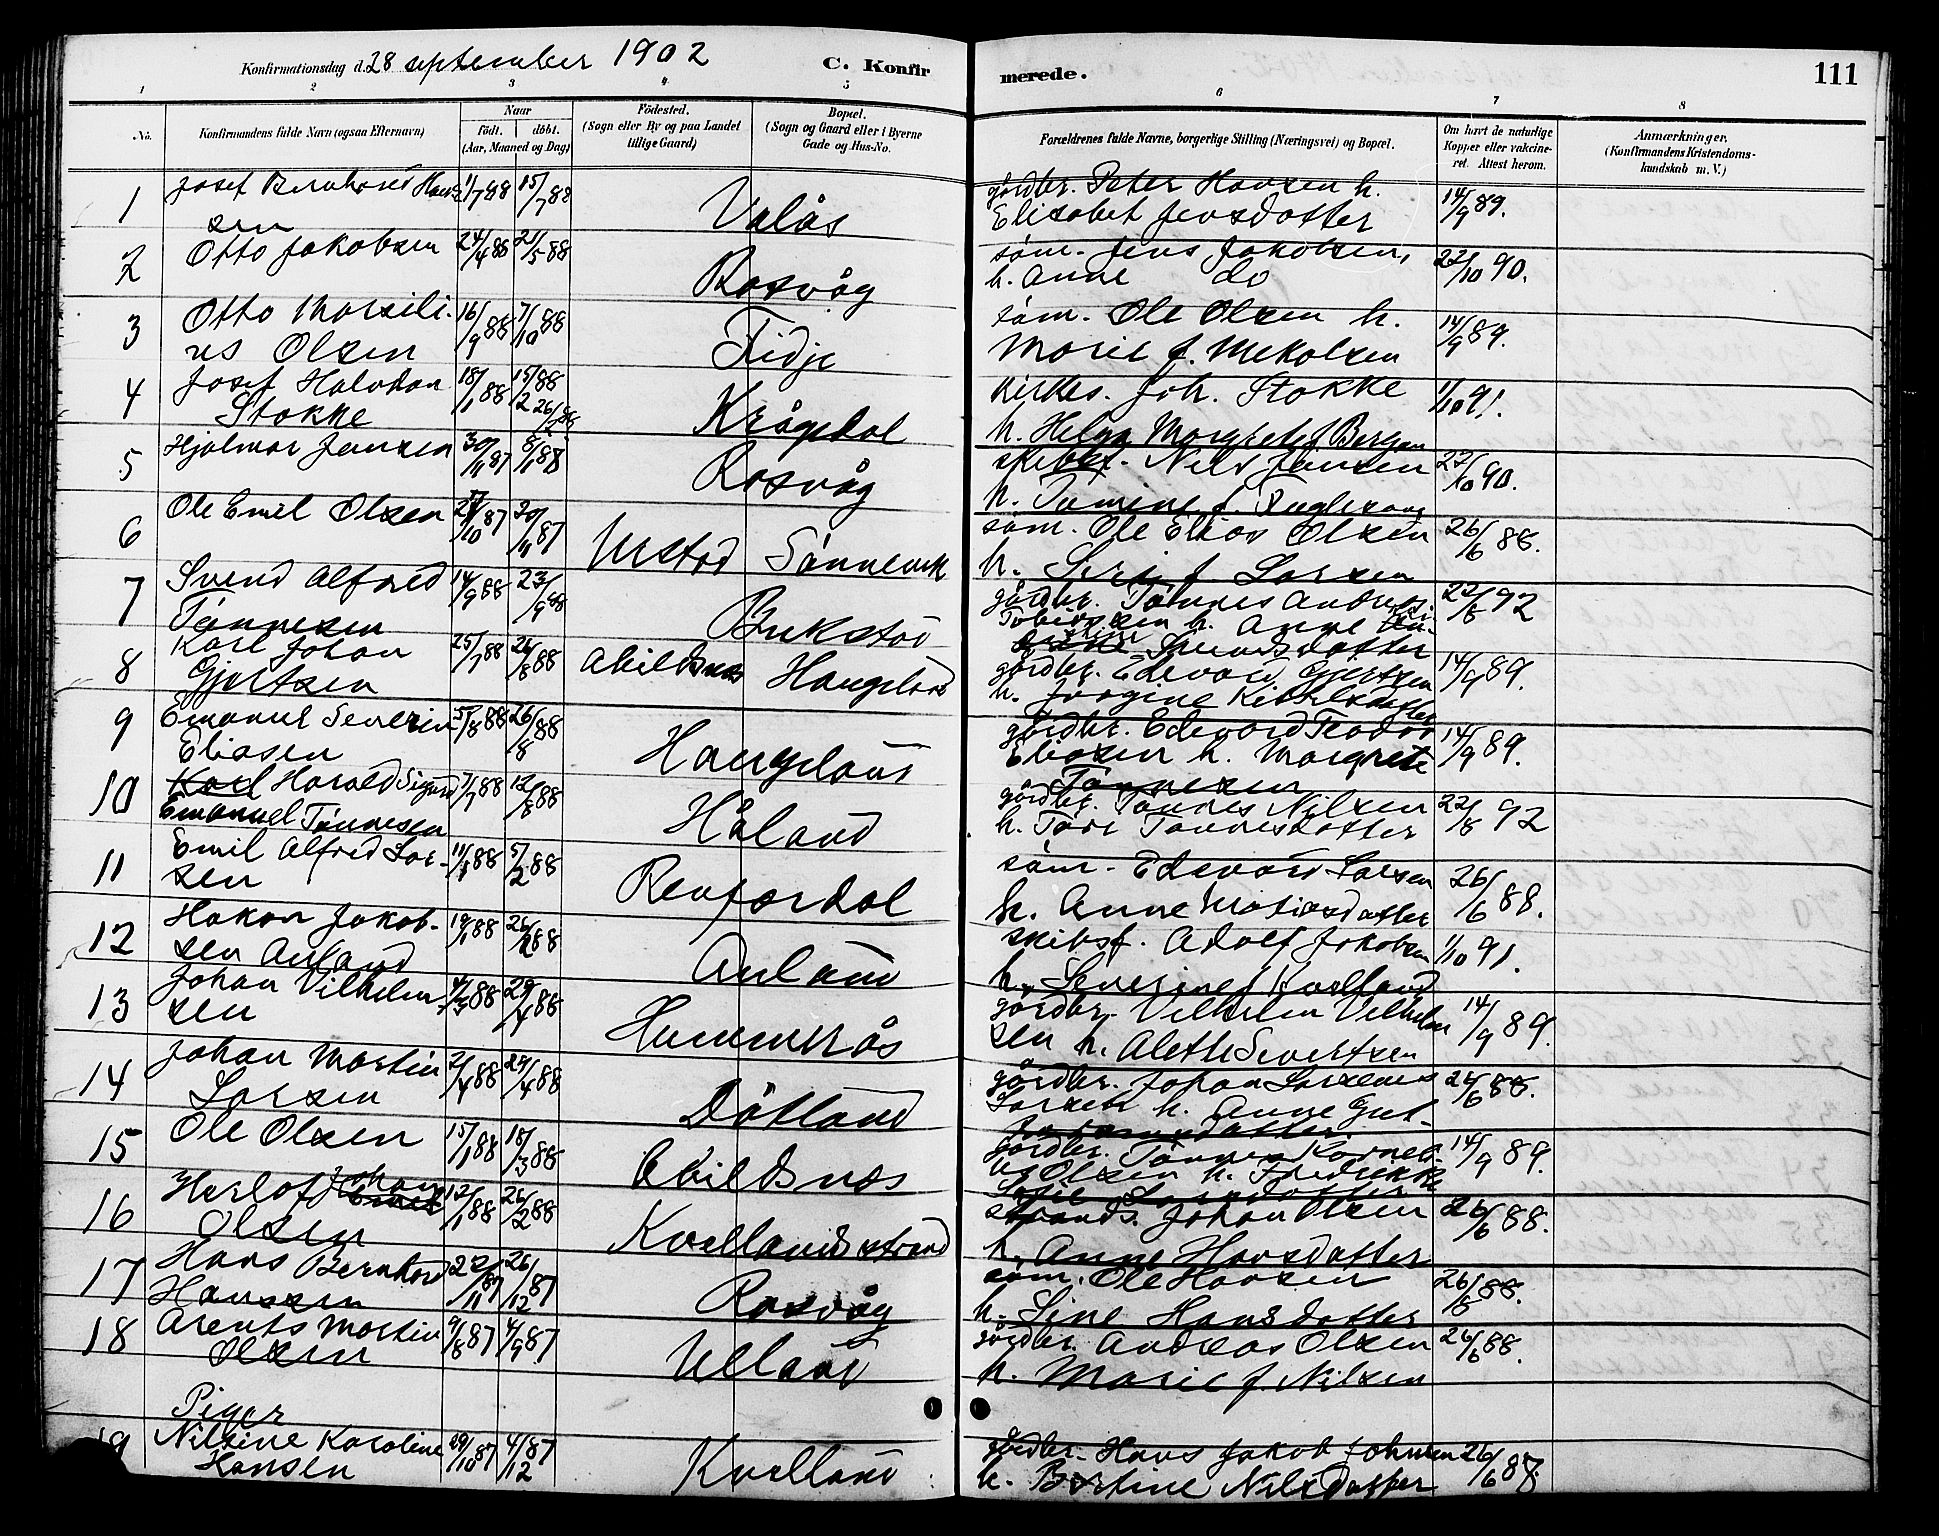 Konfirmationsdag d. 28 september 1902 C. Konfirmerede. 111
1 2 3 4 5 6 7 8
No. Konfirmandens fulde Navn (ogsaa Efternavn) Naar født. døbt. (Aar, Maaned og Dag) Fødested. (Sogn eller By og paa Landet tillige Gaard) Bopæl. (Sogn og Gaard eller i Byerne Gade og Hus-No. Forældrenes fulde Navne, borgerlige Stilling (Næringsvei) og Bopæl. Om havt de naturlige Kopper eller vaccineret. Attest herom. Anmærkninger. (Konfirmandens Kristendomskundskab m. V.)
1 Josef Bernhard Han- 1/7 88 15/7 88 Valås gårdbr. Peter Hansen h. 14/9 89.
sen Elisabet Jensdatter
2 Otto Jakobsen 24/4 88 21/5 88 Rasvåg søm. Jens Jakobsen, 22/10 90.
h. Anne do
3 Otto Marsili- 16/9 88 7/10 88 Fidje søm. Ole Olsen h. 14/9 89.
us Olsen Marie f. Mekalsen
4 Josef Halvdan 18/1 88 15/2 88 26/2 88 Krågedal kirkes. Joh. Stokke 1/10 91.
Stokke h. Helga Margrete f Bergen
5 Hjalmar Jensen 30/11 87 8/1 88 Rasvåg skibsf. Nils Jansen 22/10 90.
h. Tomine f.
6 Ole Emil Olsen 10 87 20/11 87 Urstad Sånnevik søm. Ole Elias Olsen 26/6 88.
h. Seri f Larsen
7 Svend Alfred 14/9 88 23/9 88 Bukstød gårdbr. Tønnes Andreas 22/8 92
Tønnesen Tobiassen h. Anne
Svendsdatter
8 Karl Johan 25/7 88 26/8 88 Abildsnes Haugeland gårdbr. Edevard Gjertsen 14/9 89.
Gjertsen h. Jørgine Kittelsdatter
9 Emanuel Severin 5/8 88 26/8 88 Haugeland gårdbr. Edevard Teodor 14/9 89.
Eliasen Eliasen h. Margrete
Tønnesen
10 Karl Harald Sigurd 7/7 88 12/8 88 Håland gårdbr. Tønnes Nilsen 22/8 92
Emanuel Tønnesen h. Tori Tønnesdatter
11 Emil Alfred Lar- 11/1 88 5/2 88 Revfærdal søm. Edevard Larsen 26/6 88.
sen h. Anne Matiasdatter
12 Hakon Jakob- 19/1 88 26/2 88 Anland skibsf. Adolf Jakobsen 1/10 91.
sen Anland h. Severine f Kvelland
13 Johan Vilhelm- 4/3 88 29/4 88 Hummerås gårdbr. Vilhelm Vilhelm 14/9 89.
sen sen h. Alette Sivertsen
14 Johan Martin 2/4 88 29/4 88 Døtland gårdbr. Johan Laxenes 26/6 88.
Larsen Larsen h. Anne Gut-
15 Ole Olsen 15/1 88 18/3 88 Abildsnes gårdbr. Tønnes Korneli- 14/9 89.
us Olsen h. Fredrikke
Sofie Larsdatter
16 Herlof Johan Emil 12/1 88 26/2 88 Kvellandsstrand strands. Johan Olsen 26/6 88.
Olsen h. Anne Hansdatter
17 Hans Bernhard 22/11 87 26/12 87 Rasvåg søm. Ole Hansen 26/6 88.
Hansen h. Sine Hansdatter
18 Arents Martin 9/8 87 4/9 87 Ulland gårdbr. Andreas Olsen 26/6 88.
Olsen h. Marie f. Nilsen
Piger
19 Nilsine Karoline 29/10 87 4/12 87 Kvelland gårdbr. Hans Jakob Johnsen 26/6 88.
Hansen h. Bertine Nilsdatter